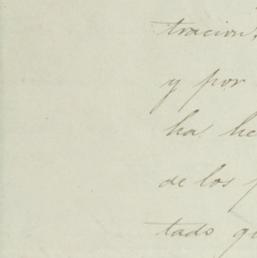 tracion,
y por
ha he
de los p
tado qu